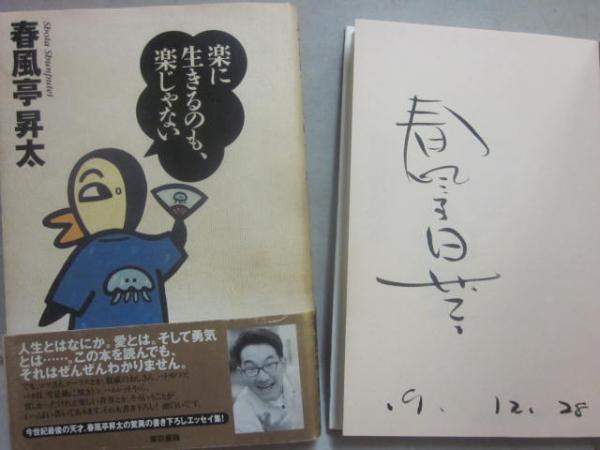 Shota Shunputei
春風亭昇太
楽に
生きるのも、
楽じゃない
人生とはなにか。愛とは。そして勇気
とは……。この本を読んでも、
それはぜんぜんわかりません。
今世紀最後の天才、春風亭昇太の驚異の書き下ろしエッセイ集!
春風亭昇太
'9. 12. 28